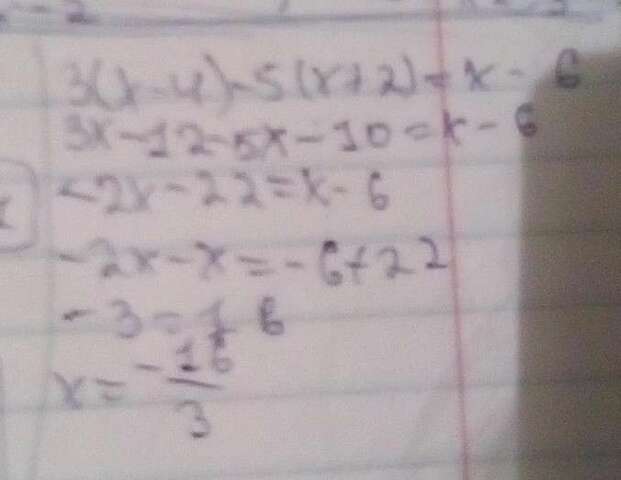 3(x-4)-5(x+2)=x-6
3x-12-5x-10=x-6
-2x-22=x-6
-2x-x=-6+22
-3=16
x=-16/3